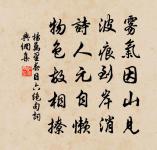 霧氣因山見
波痕到岸消
詩人元自懶
物色故相撩
楊萬里春日六絕句詞
典網集